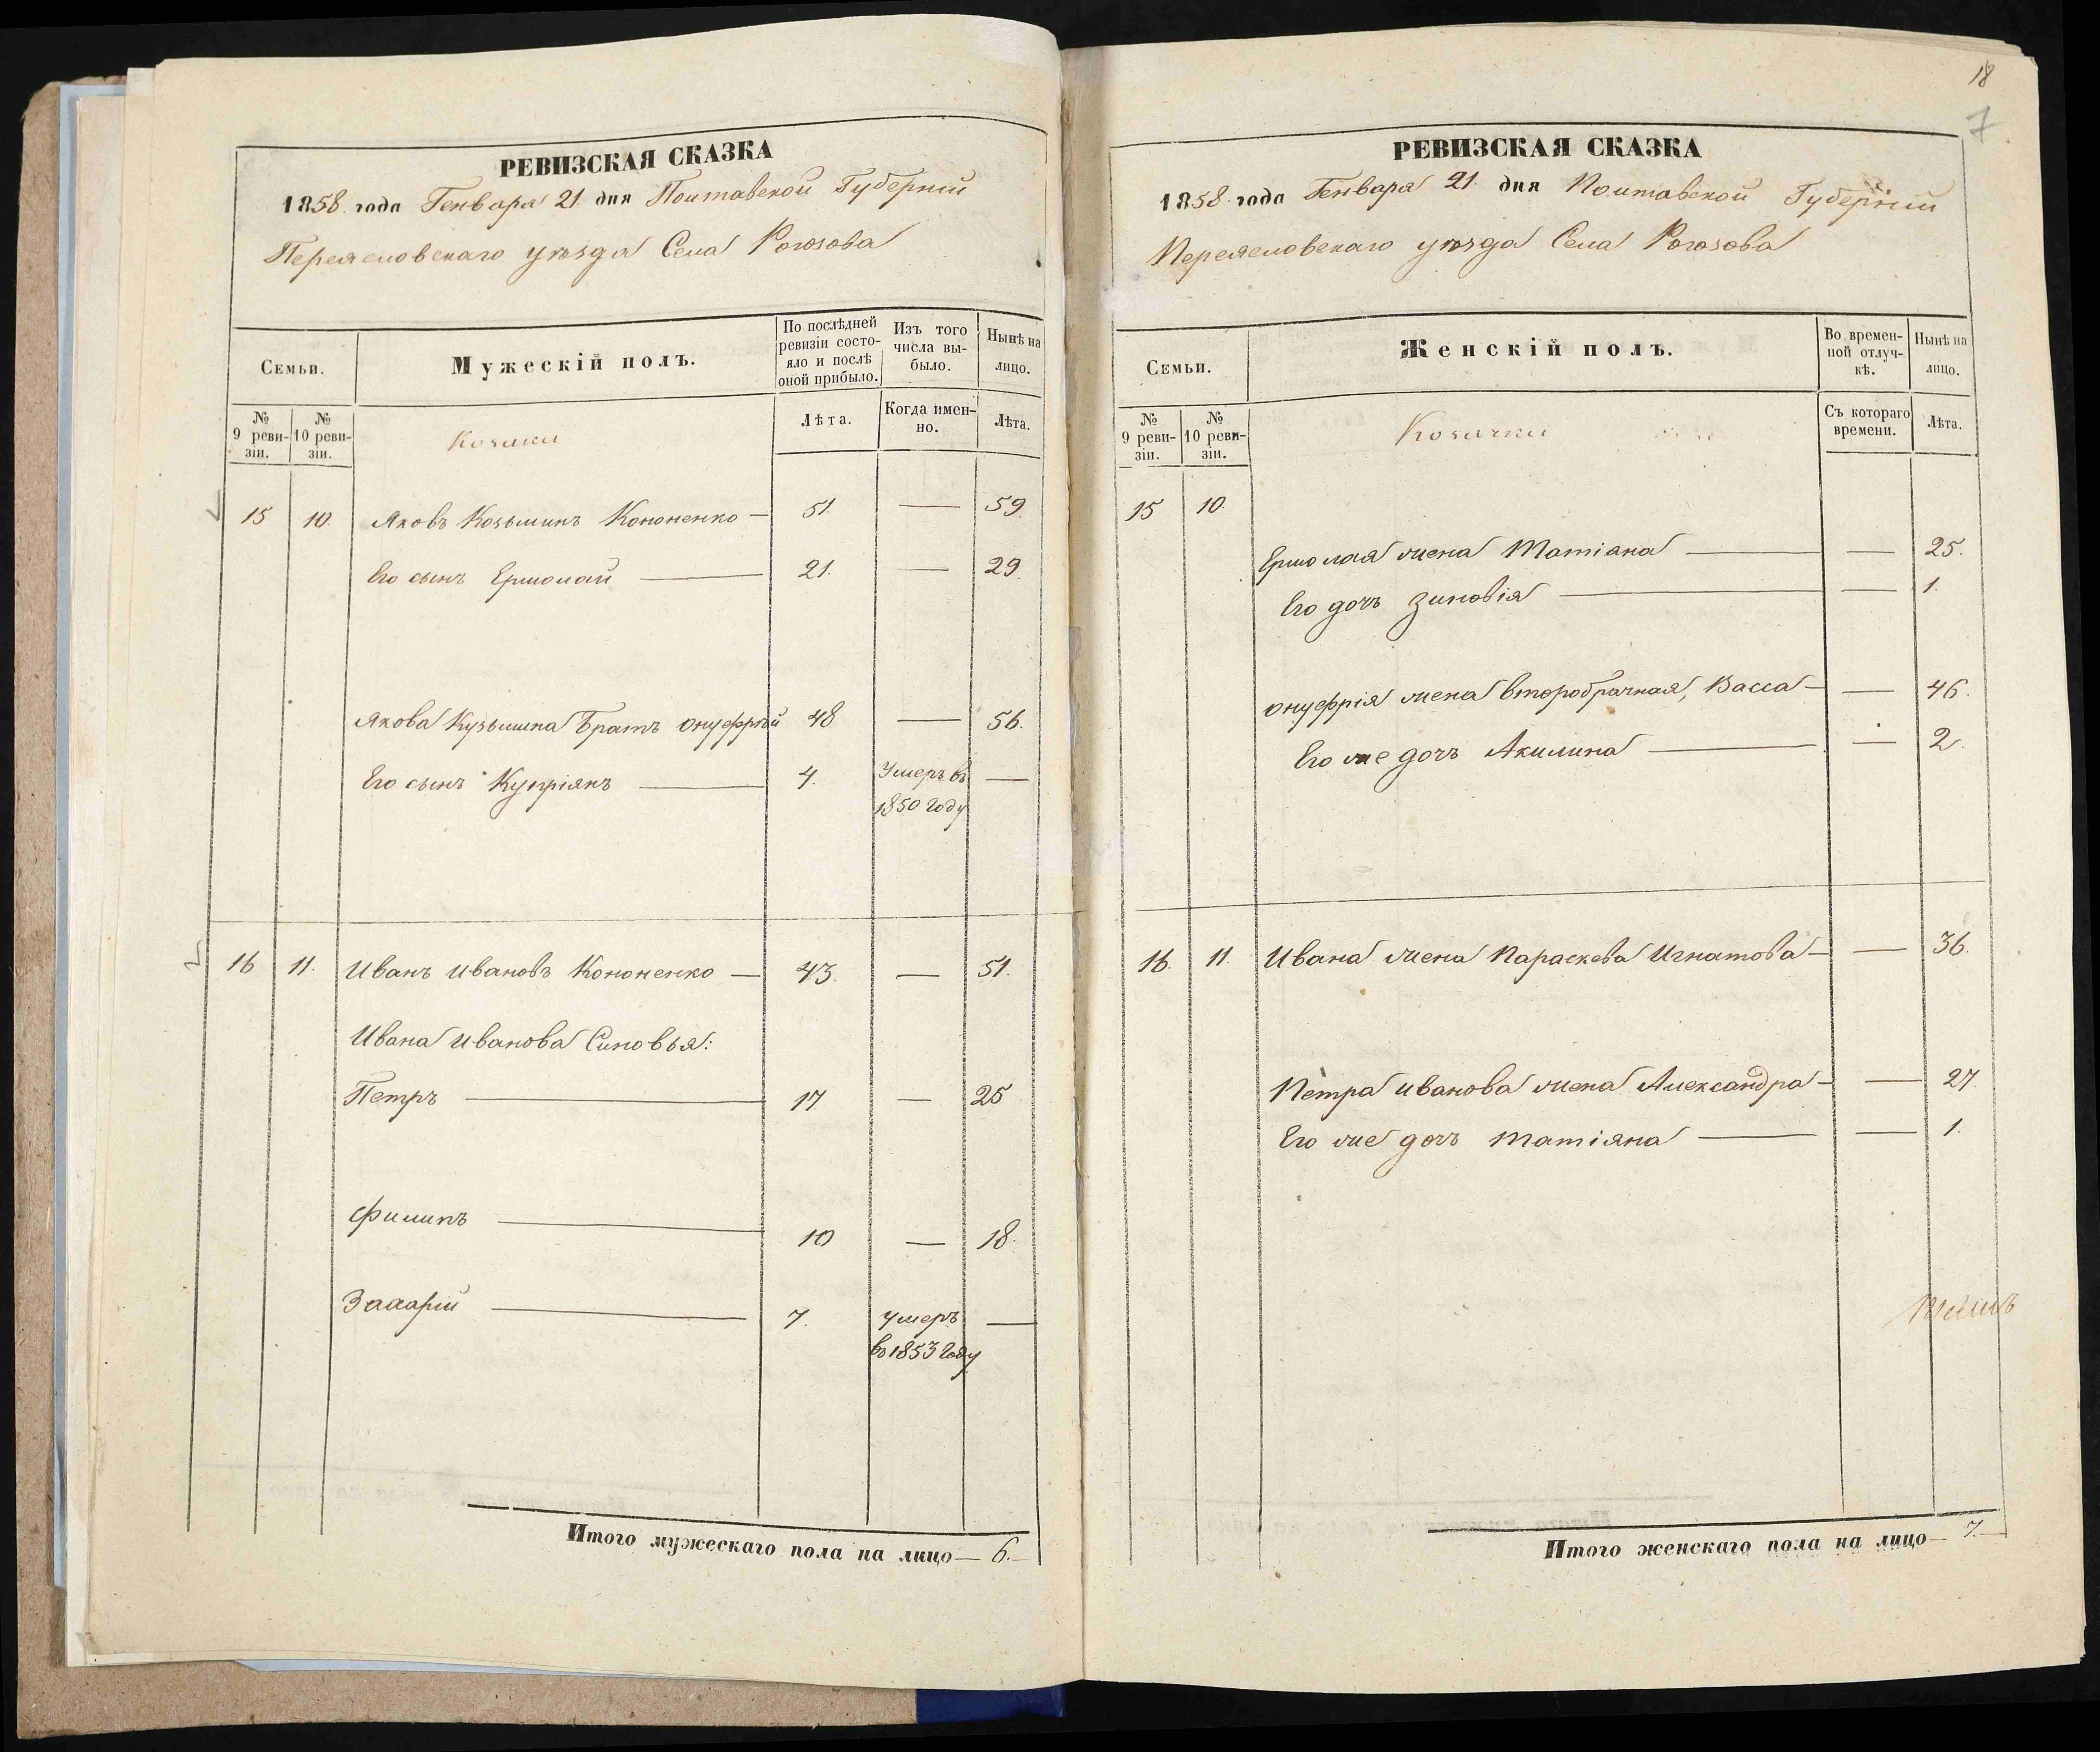 РЕВИЗСКАЯ СКАЗКА
1858 года Генваря 21 дня Полтавской Губерніи
Переяславскаго уѣзда Села Рогозова
Семьи.
Мужескій полъ.
По послѣдней ревизіи состояло и послѣ оной прибыло.
Изъ того числа выбыло.
Нынѣ на лицо.
№ 9 ревизіи.
№ 10 ревизіи.
Козаки
Лѣта.
Когда именно.
Лѣта.
15 10. Яковъ Козьминъ Кононенко — 51. — 59
Его сынъ Ермолай — 21. — 29.
Якова Кузьмина Братъ Онуфрій 48 — 56.
Его сынъ Купріянъ — 4. Умеръ въ —
1850 Году
16 11. Иванъ Ивановъ Кононенко — 43. — 51.
Ивана Иванова Синовья:
Петръ — 17 — 25
Филипъ — 10 — 18.
Захарій — 7. Умеръ —
въ 1853 Году
Итого мужескаго пола на лицо — 6.
18
7
РЕВИЗСКАЯ СКАЗКА
1858 года Генваря 21. дня Полтавской Губерніи
Переяславскаго уѣзда Села Рогозова
Семьи.
Женскій полъ.
Во временной отлучкѣ.
Нынѣ на лицо.
№ 9 ревизіи.
№ 10 ревизіи.
Козачки
Съ котораго времени.
Лѣта.
15 10.
Ермолая жена Татіана — — 25.
Его дочь Зиновія — — 1.
Онуфрія жена второбрачная, Васса — — 46.
Его же дочь Акилина — — 2.
16. 11. Ивана жена Параскева Игнатова — — 36.
Петра Иванова жена Александра — — 27.
Его же дочь Татіяна — — 1.
Итого женскаго пола на лицо — 7.